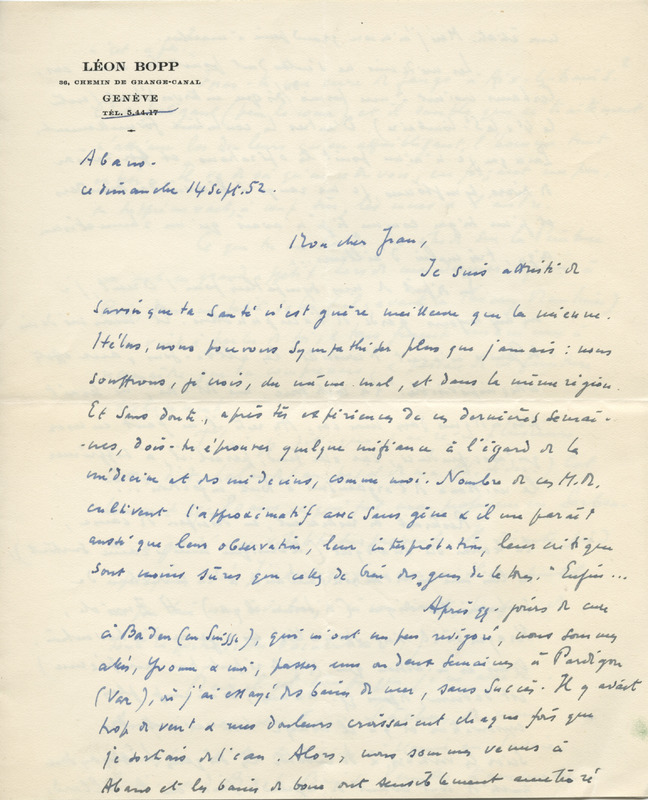 LÉON BOPP
36, CHEMIN DE GRANGE-CANAL
GENÈVE
TÉL. 5.44.17
Abano.
ce dimanche 14 Sept. 52.
Mon cher Jean,
Je suis attristé de
savoir que ta santé n'est guère meilleure que la mienne.
Hélas, nous pouvons sympathiser plus que jamais : nous
souffrons, je crois, du même mal, et dans la même région.
Et sans doute, après tes expériences de ces dernières semai-
-nes, dois-tu éprouver quelque méfiance à l'égard de la
médecine et des médecins, comme moi. Nombre de ces M.
cultivent l'approximatif avec sans gêne & il me paraît
aussi que leur observation, leur interprétation, leur critique
sont moins sûres que celles de bien des "gens de lettres." Enfin...
Après qq. jours de cure
à Baden (en Suisse), qui m'ont un peu revigoré, nous sommes
allés, Yvonne & moi, passer une ou deux semaines à Pardigon
(Var), où j'ai essayé des bains de mer, sans succès. Il y avait
trop de vent & mes douleurs croissaient chaque fois que
je sortais de l'eau. Alors, nous sommes venus à
Abano et les bains de boue ont sensiblement amélioré